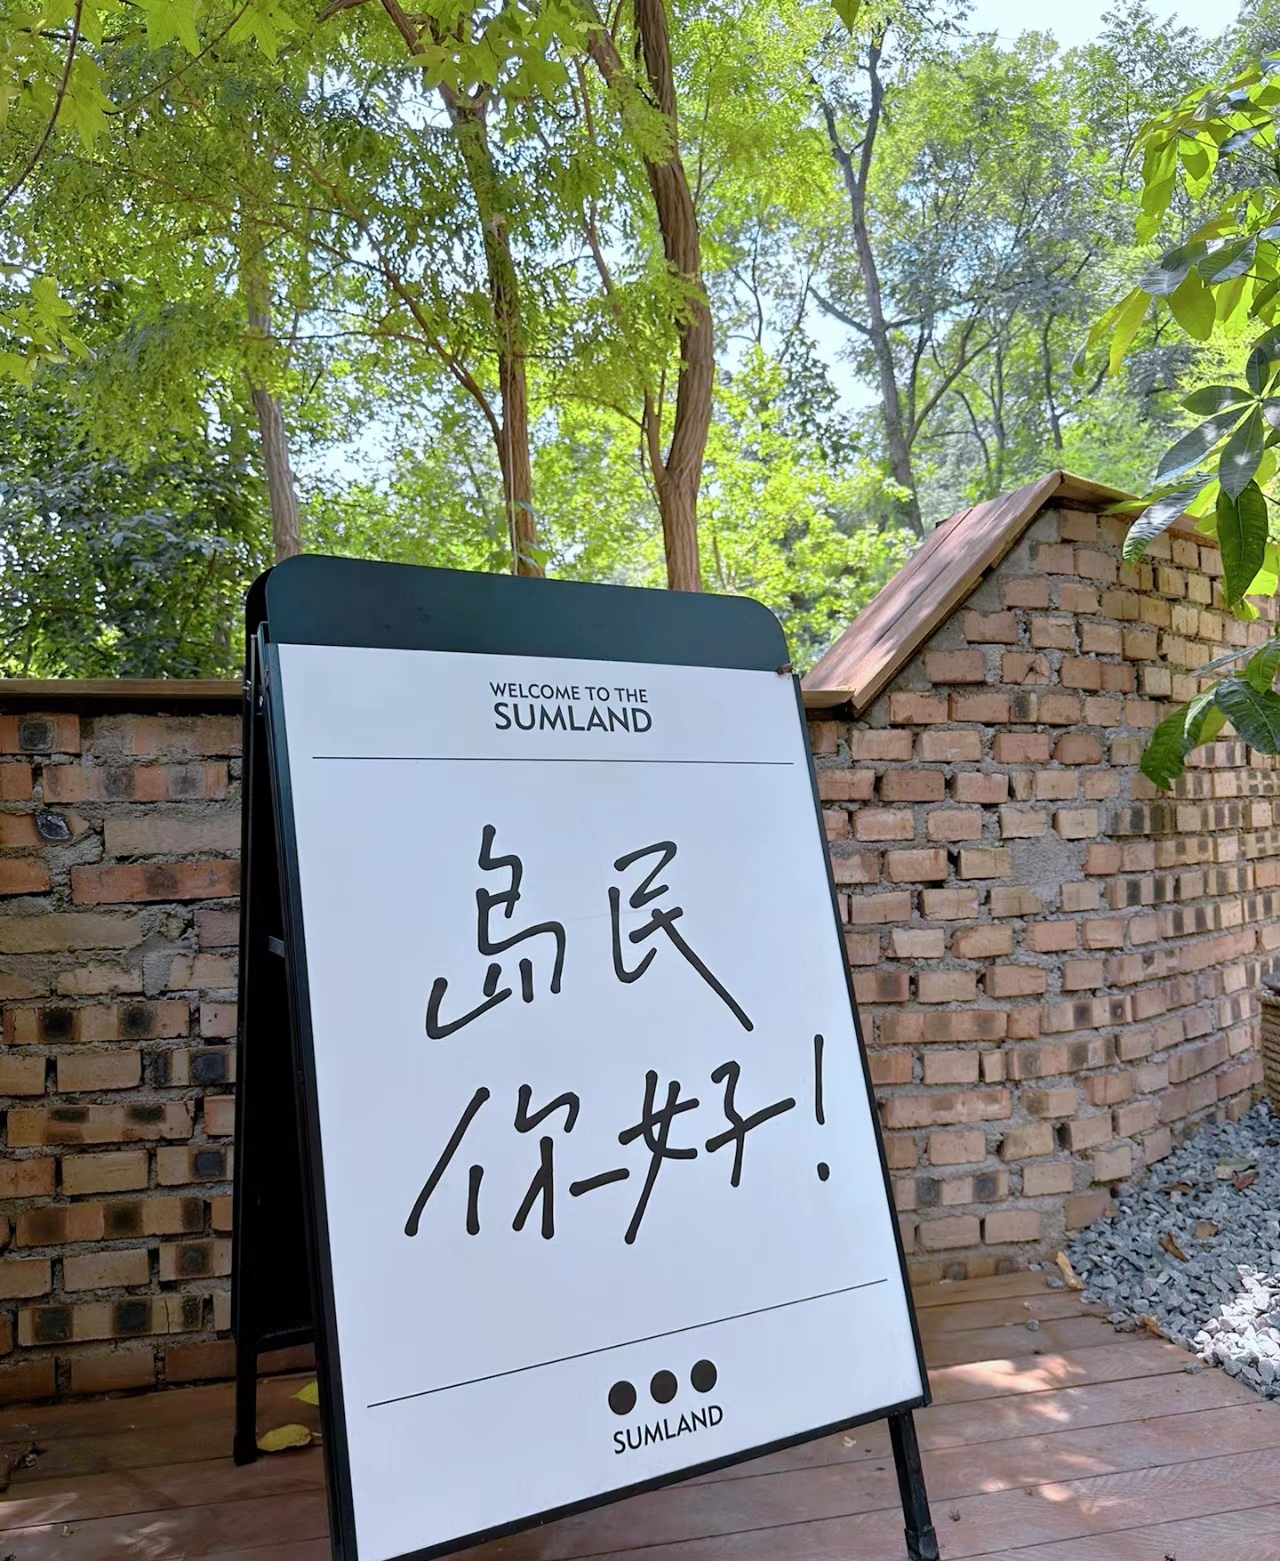 WELCOME TO THE
SUMLAND
岛民
你好！
SUMLAND